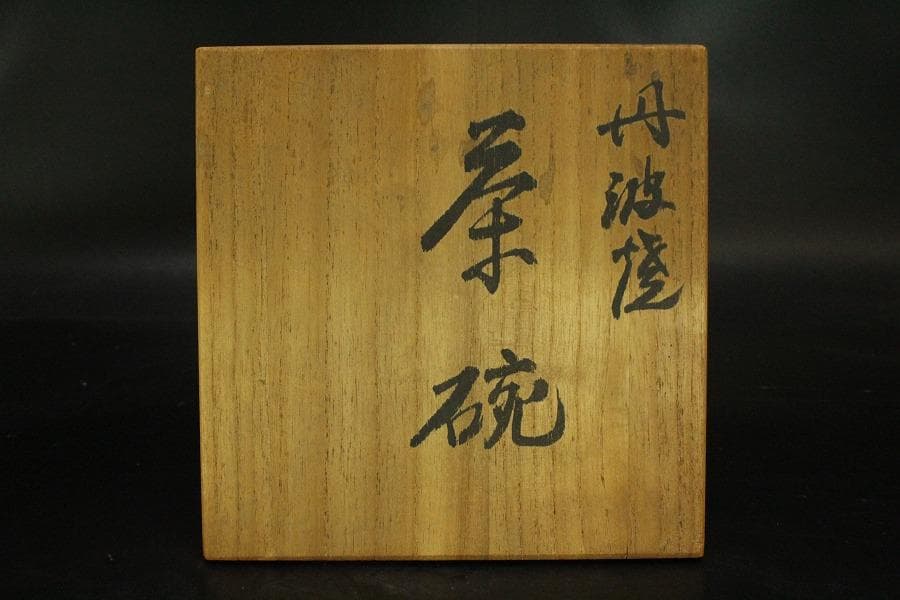 丹波焼
茶碗